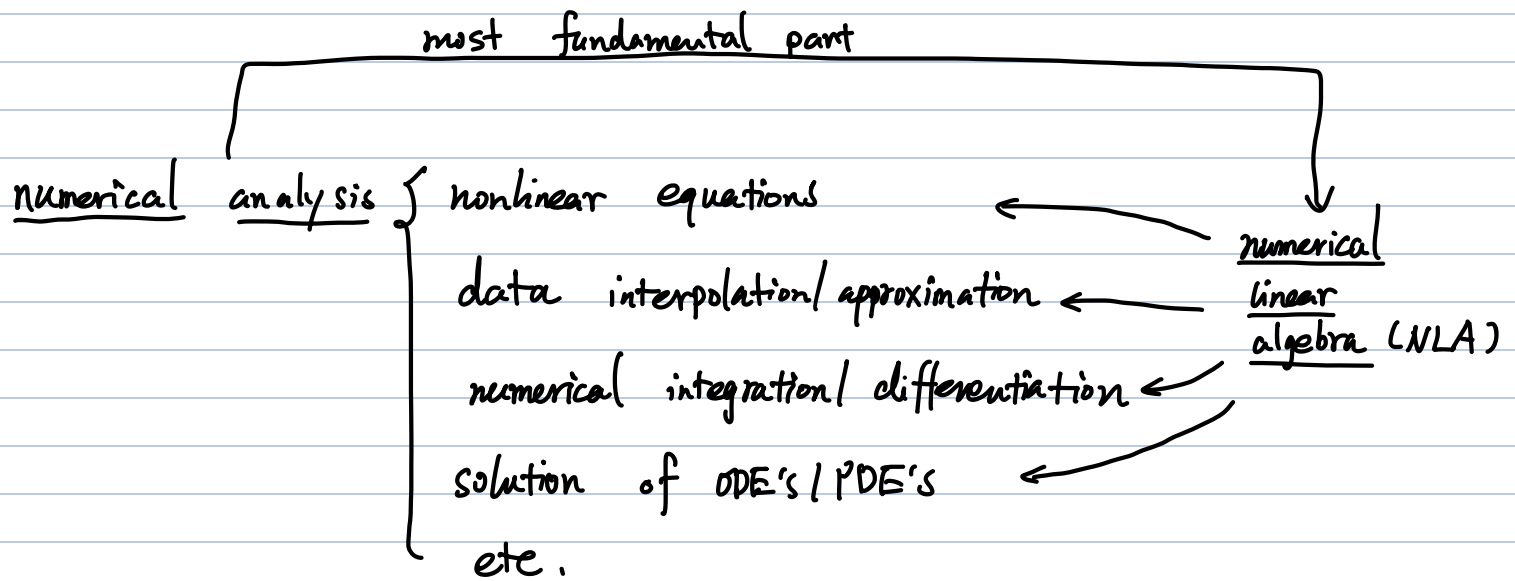 most fundamental part
numerical analysis { nonlinear equations
data interpolation/approximation
numerical integration/differentiation
solution of ODE's/PDE's
etc.
numerical
linear
algebra (NLA)